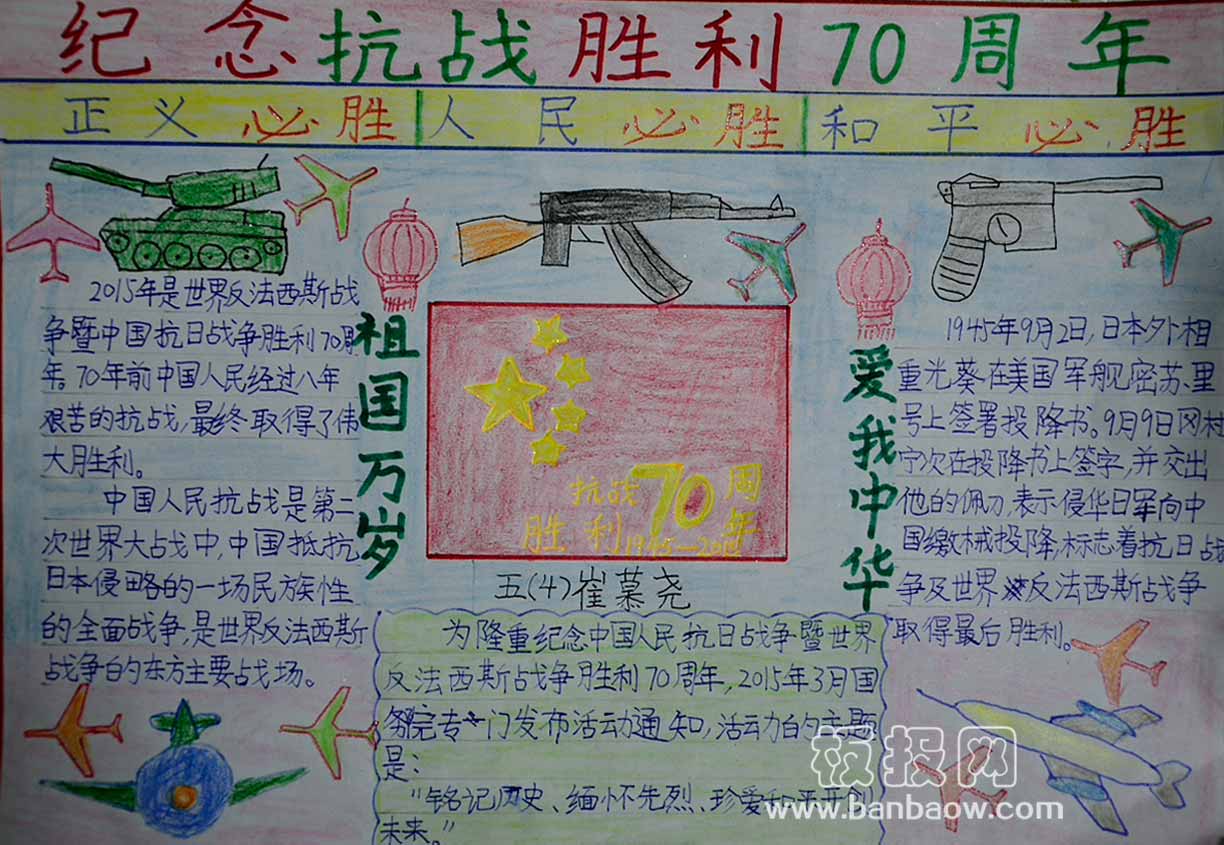 纪念抗战胜利70周年
正义必胜 人民必胜 和平必胜
2015年是世界反法西斯战
争暨中国抗日战争胜利70周
年。70年前中国人民经过八年
艰苦的抗战,最终取得了伟
大胜利。
中国人民抗战是第二
次世界大战中,中国抵抗
日本侵略的一场民族性
的全面战争,是世界反法西斯
战争的东方主要战场。
祖国万岁
抗战
胜利70周年
1945—2015
五(4)崔慕尧
为隆重纪念中国人民抗日战争暨世界
反法西斯战争胜利70周年,2015年3月国
务院专门发布活动通知,活动的主题
是:
“铭记历史、缅怀先烈、珍爱和平开创
未来。”
爱我中华
1945年9月2日,日本外相
重光葵在美国军舰密苏里
号上签署投降书。9月9日冈村
宁次在投降书上签字,并交出
他的佩刀,表示侵华日军向中
国缴械投降,标志着抗日战
争及世界反法西斯战争
取得最后胜利。
板报网
www.banbaow.com